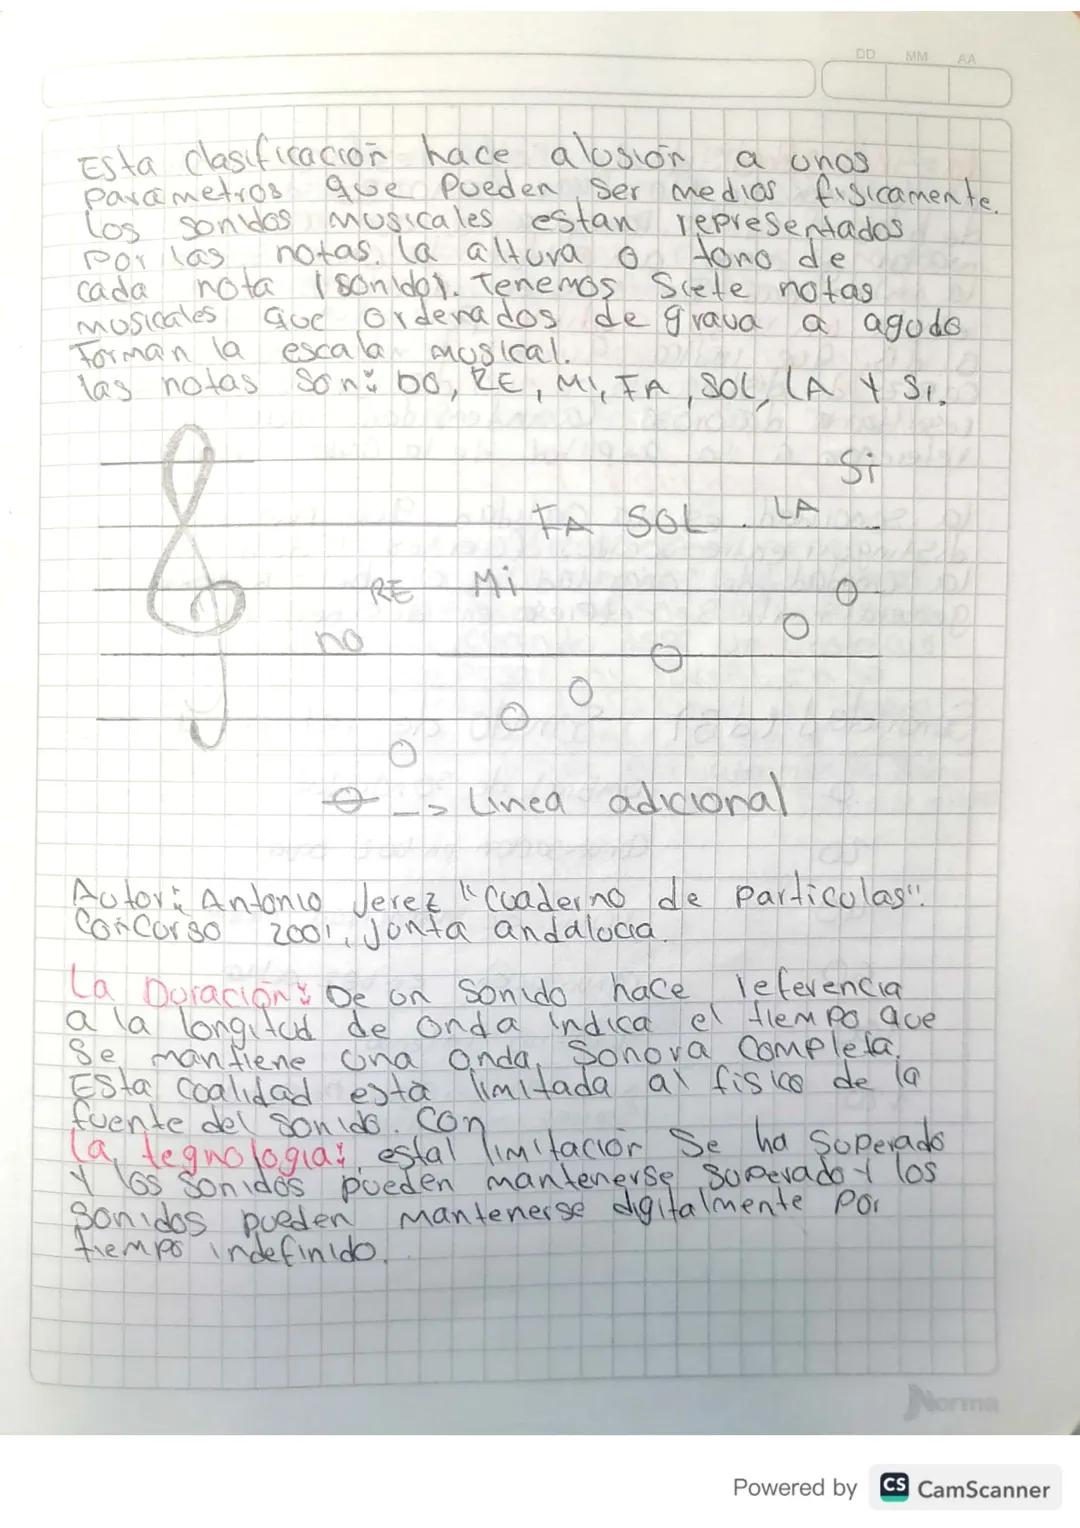 DD MM AA
Esta clasificación hace alusión a unos
parámetros que pueden ser medios físicamente.
Los sonidos musicales estan representados
por las notas. la altura o tono de
cada nota (sonido). Tenemos Siete notas
musicales que ordenados de grava a agudo
Forman la escala musical.
las notas son: DO, RE, Mi, FA, SOL, LA Y Si.
Si
FA SOL LA
RE Mi
no
--> Linea adicional
Autor: Antonio Jerez "Cuaderno de particulas".
Concurso 2001, Junta andalucia.
La Duración: De un sonido hace referencia
a la longitud de onda indica el tiempo que
se mantiene una onda, Sonora completa.
Esta cualidad está limitada al fisico de la
fuente del sonido. Con
la tegnologia: estal limitación Se ha Superado
Y los sonidos pueden mantenerse superado Y los
Sonidos pueden mantenerse digitalmente por
tiempo indefinido.
Norma
Powered by CS CamScanner